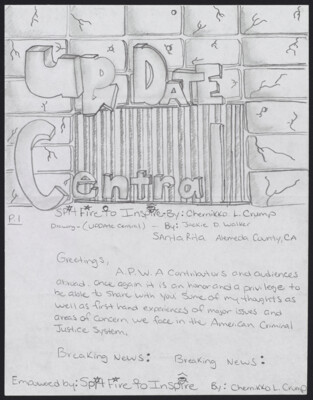 UPDATE
Central
Spit Fire to Inspire - By: Chemikko L. Crump
P.1
Drawing - (UPDATE Central) - By: D. Walker
Santa Rita, Alameda County, CA
Greetings,
A.P.W.A Contributors and audiences
abroad, once again it is an honor and a privilege to
be able to share with you some of my thoughts as
well as first hand experiences of major issues and
areas of concern we face in the American Criminal
Justice System.
Breaking News: Breaking News:
Empowered by: Spit Fire to Inspire By: Chemikko L. Crump